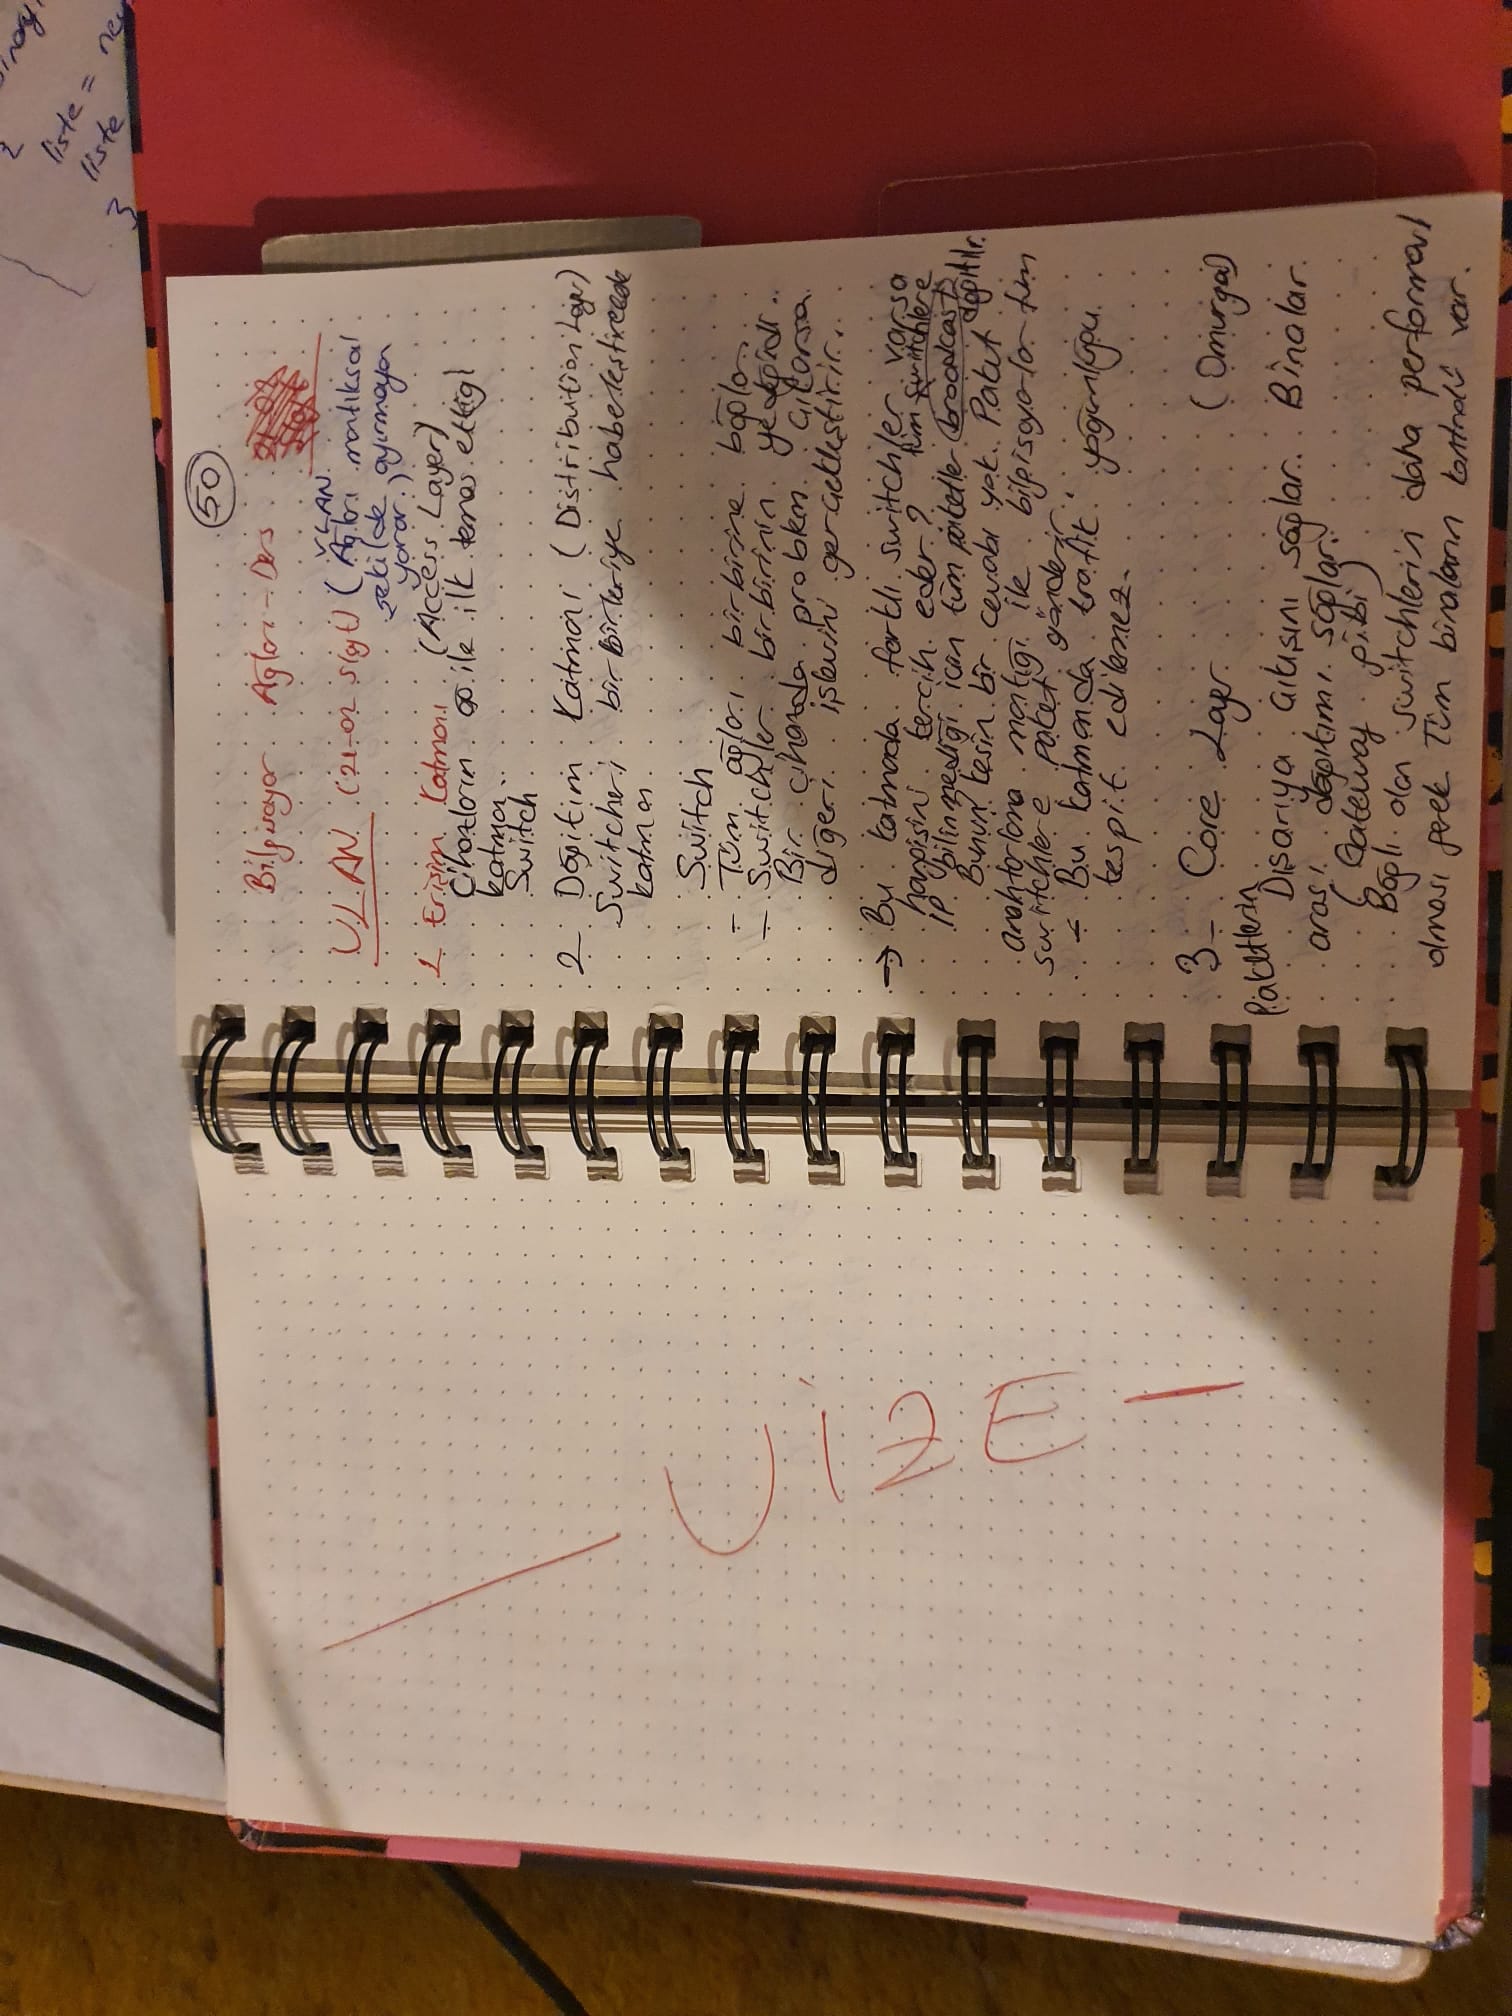 – VİZE –
50
Bilgisayar Ağları - Ders
VLAN (21-02 Slayt) (VLAN Ağları mantıksal
şekilde ayırmaya
yarar.)
1 Erişim Katmanı (Access Layer)
Cihazların ağ ile ilk temas ettiği
katman.
Switch
2 Dağıtım Katmanı (Distribution Layer)
Switcheri birbirleriye haberleştirecek
katman
Switch
- Tüm ağları birbirine bağlar.
- Switchler birbirinin yedeğidir.
Bir cihazda problem çıkarsa
diğeri işlevini gerçekleştirir.
→ Bu katmada farklı switchler varsa
hangisini tercih eder? tüm switchlere
IP bilinmediği için tüm paketler broadcast dağıtılır.
Bunun kesin bir cevabı yok. Paket
anahtarlama mantığı ile bilgisayarlar tüm
switchlere paket gönderir.
- Bu katmanda trafik yoğunluğu
tespit edilemez.
3- Core Layer (Omurga)
Paketlerin
Dışarıya çıkışını sağlar. Binalar
arası dağıtımı sağlar.
(Gateway gibi)
Bağlı olan switchlerin daha performanslı
olması gerek Tüm binaların kontrolü var.
2
liste = 
liste
3